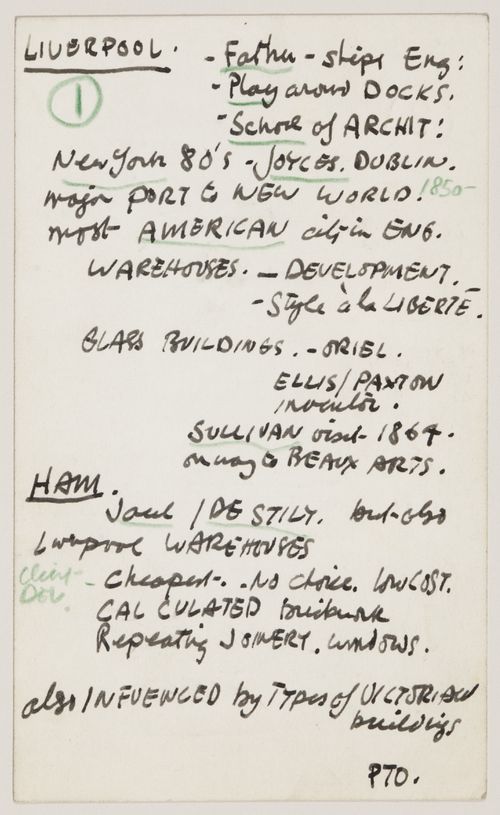 LIVERPOOL. - Father - ships Eng:
① - Play around DOCKS.
- School of ARCHIT!
New York 80's - JOYCES. DUBLIN.
major PORT to NEW WORLD. 1850-
most AMERICAN city in ENG.
WAREHOUSES. - DEVELOPMENT.
- Style à la LIBERTÉ.
GLASS BUILDINGS. - ORIEL.
ELLIS/PAXTON
inventor.
SULLIVAN visit 1864.
on way to BEAUX ARTS.
HAM.
Jaoul / DE STILT. but also
Liverpool WAREHOUSES
Client - Cheapest. . No choice. LOW COST.
DEV. CALCULATED brickwork
Repeating JOINERY. windows.
also INFUENCED by Types of VICTORIAN
buildings
PTO.